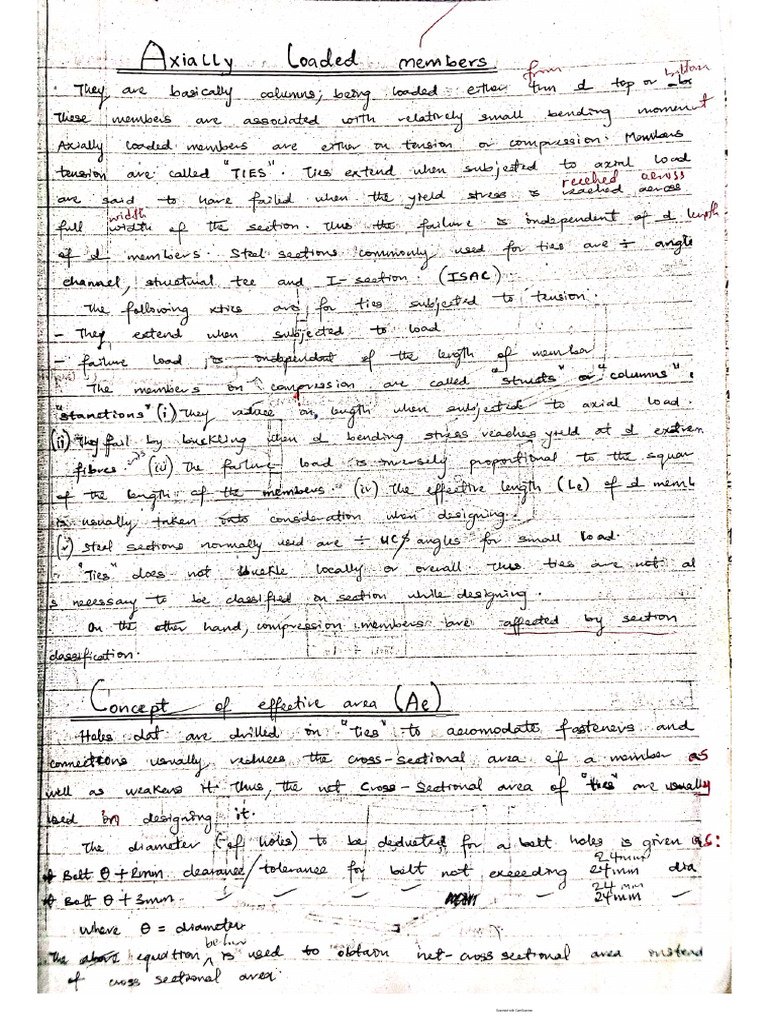 Axially Loaded members
from bottom
They are basically columns, being loaded either from d top or
These members are associated with relatively small bending moment
Axially loaded members are either on tension or compression. Members
tension are called "TIES". Ties extend when subjected to axial load
reached across
are said to have failed when the yield stress is reached across
width
full width of the section. thus the failure is independent of d length
of d members. Steel sections commonly used for ties are ÷ angle
channel, structural tee and I-section. (ISAC).
The following xtics are for ties subjected to tension.
- They extend when subjected to load
- failure load, is independent of the length of member
The members on compression are called "structs" or "columns"
"stanctions" (i) They reduce on length when subjected to axial load.
(ii) They fail by buckling when d bending stress reaches yield at d extrem
fibres. (iii) The failure load is inversely proportional to the squar
of the length of the members. (iv) The effective length (Le) of d memb
is usually taken into consideration when designing.
(v) Steel sections normally used are ÷ UC/angles for small load.
"Ties" does not buckle locally or overall. Thus ties are not al
s necessary to be classified on section while designing.
On the other hand, compression members are affected by section
classification.
Concept of effective area (Ae)
Holes dat are drilled on "ties" to accomodate fasteners and
connections usually, reduces the cross-sectional area of a member as
well as weakens it. Thus, the net Cross-Sectional area of "ties" are usually
used in designing it.
The diameter (of holes) to be deducted for a bolt holes is given as:
24mm
* Bolt θ + 2mm clearance/tolerance for bolt not exceeding 24mm dia
24 mm
* Bolt θ + 3mm 24mm
where θ = diameter
below
The above equation is used to obtain net-cross sectional area instead
of cross sectional area.
Scanned with CamScanner